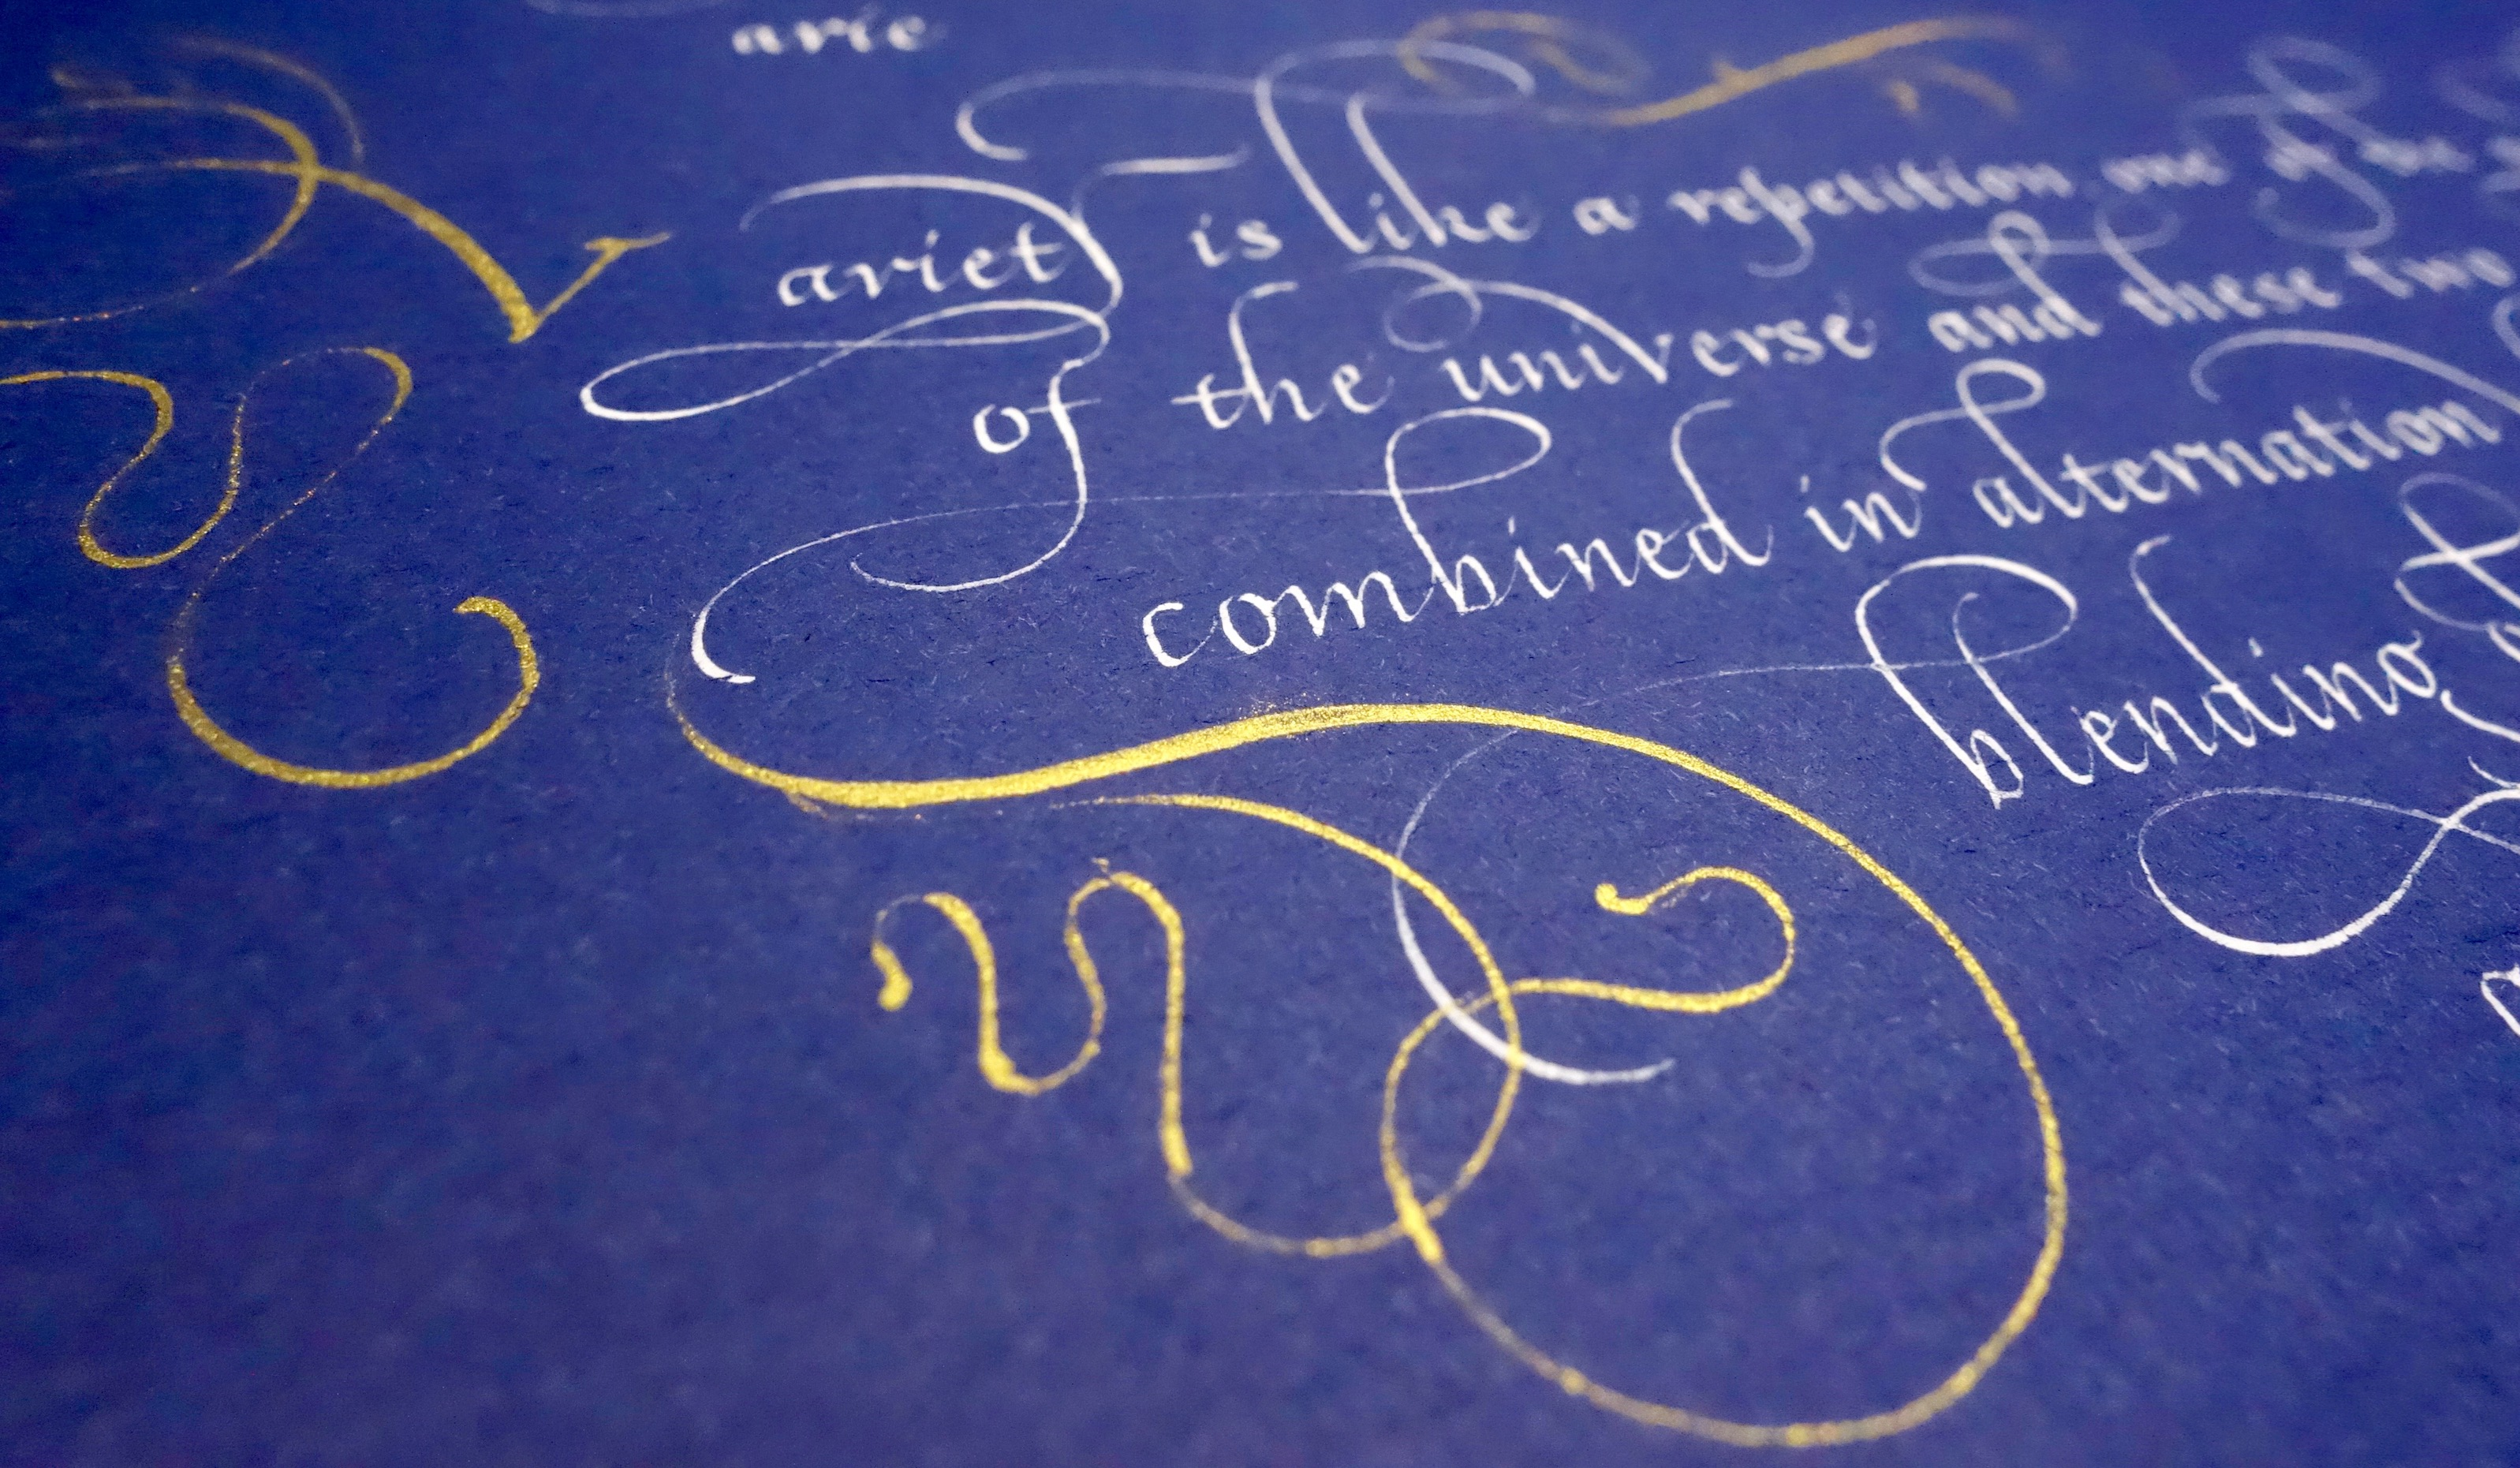 arie
Variety is like a repetition one of the
of the universe and these two
combined in alternation
blending